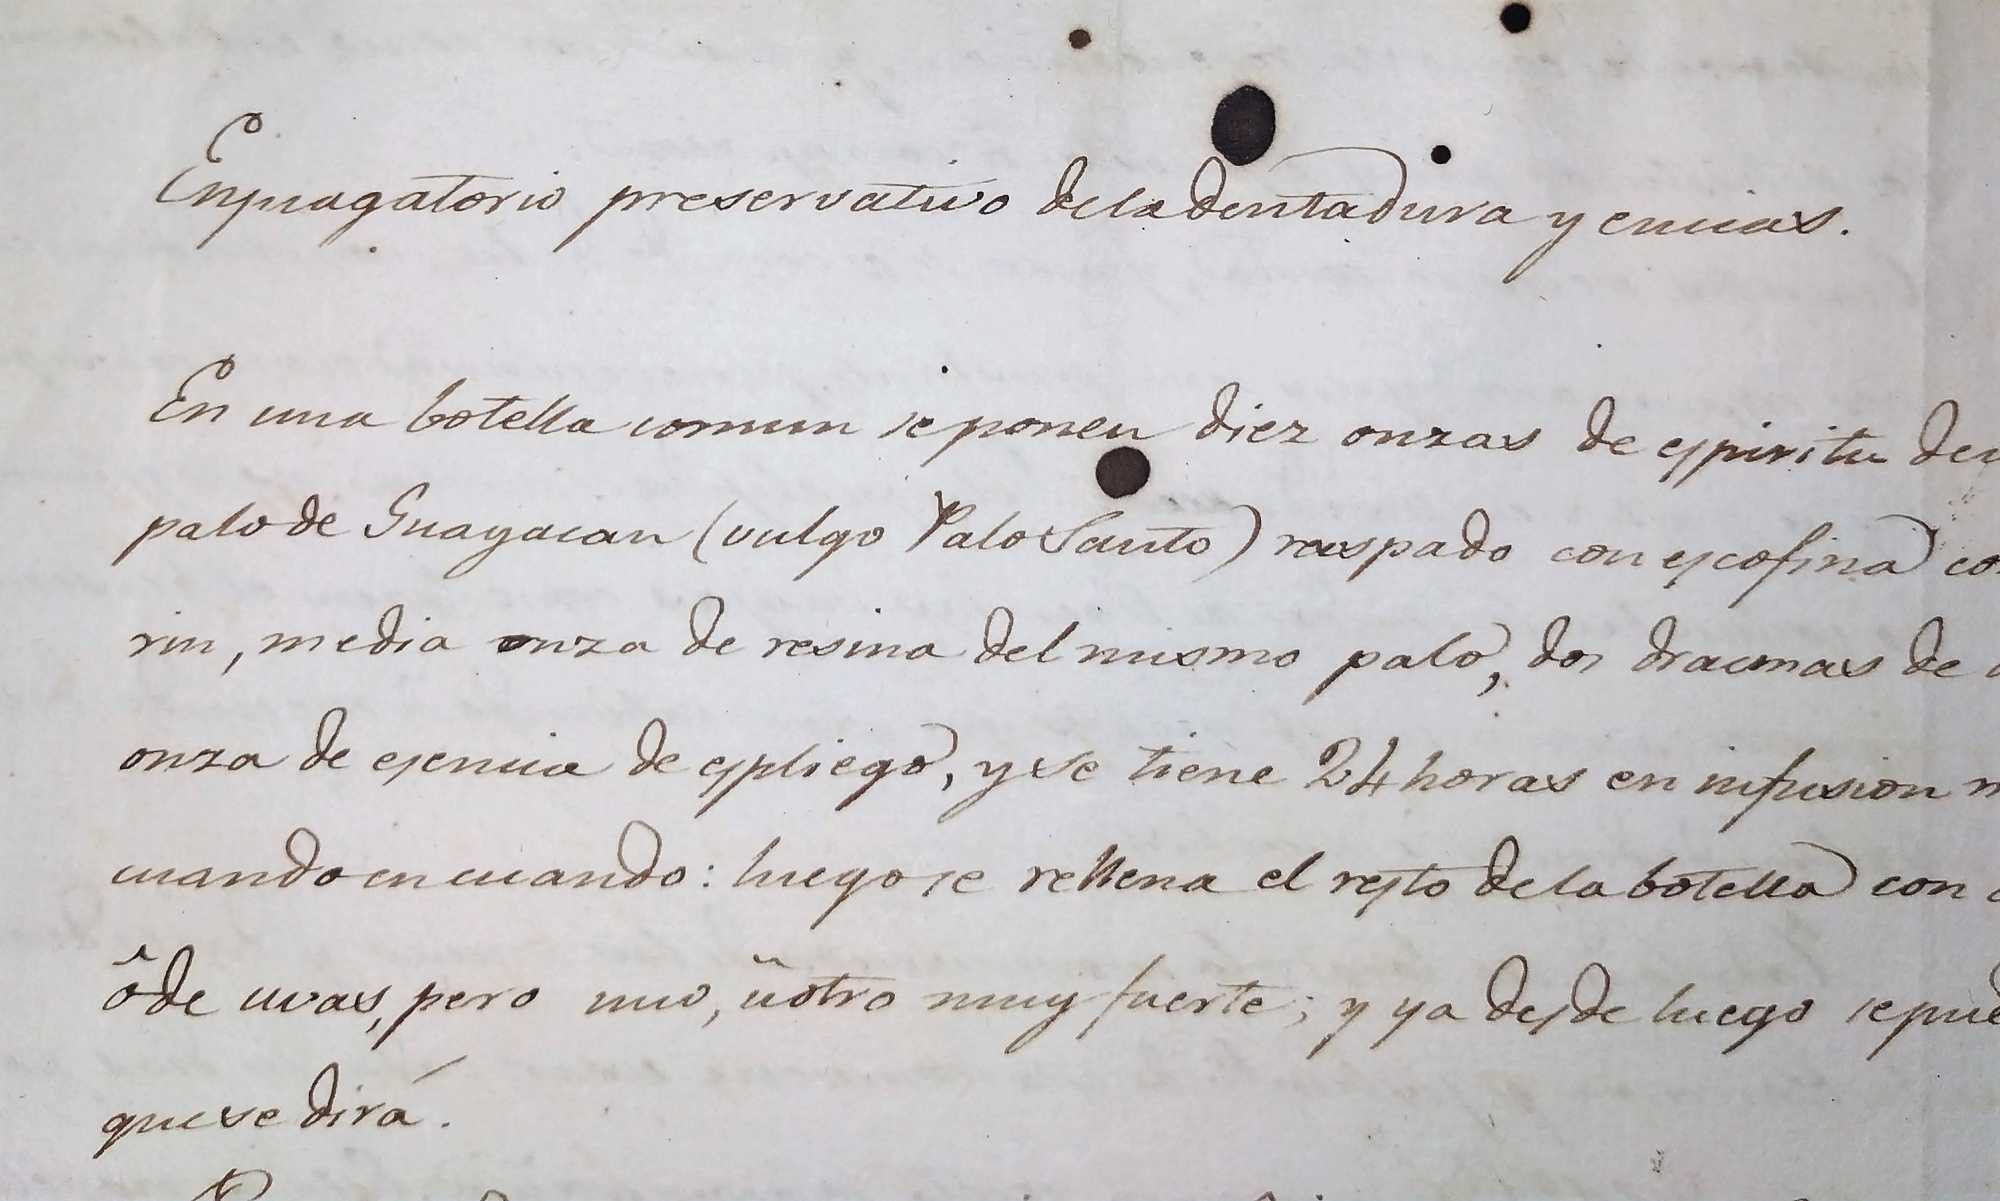 Enjuagatorio preservativo de la dentadura y encias.
En una botella comun se ponen diez onzas de espiritu de
palo de Guayacan (vulgo Palo Santo) raspado con escofina
rin, media onza de resina del mismo palo, dos dracmas de
onza de esencia de espliego, y se tiene 24 horas en infusion
cuando en cuando: luego se rellena el resto de la botella con
ô de uvas, pero uno, û otro muy fuerte; y ya desde luego se pued
que se dirá.